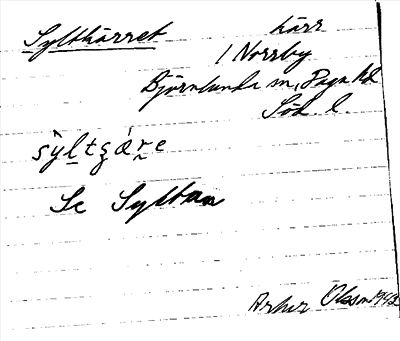 Syltkärret
kärr
i Norrby
Björnlunda sn, Daga hd
Söd. l.
sy̆ltʂǽr̥e
Se Syltan
Arthur Olsson 1942